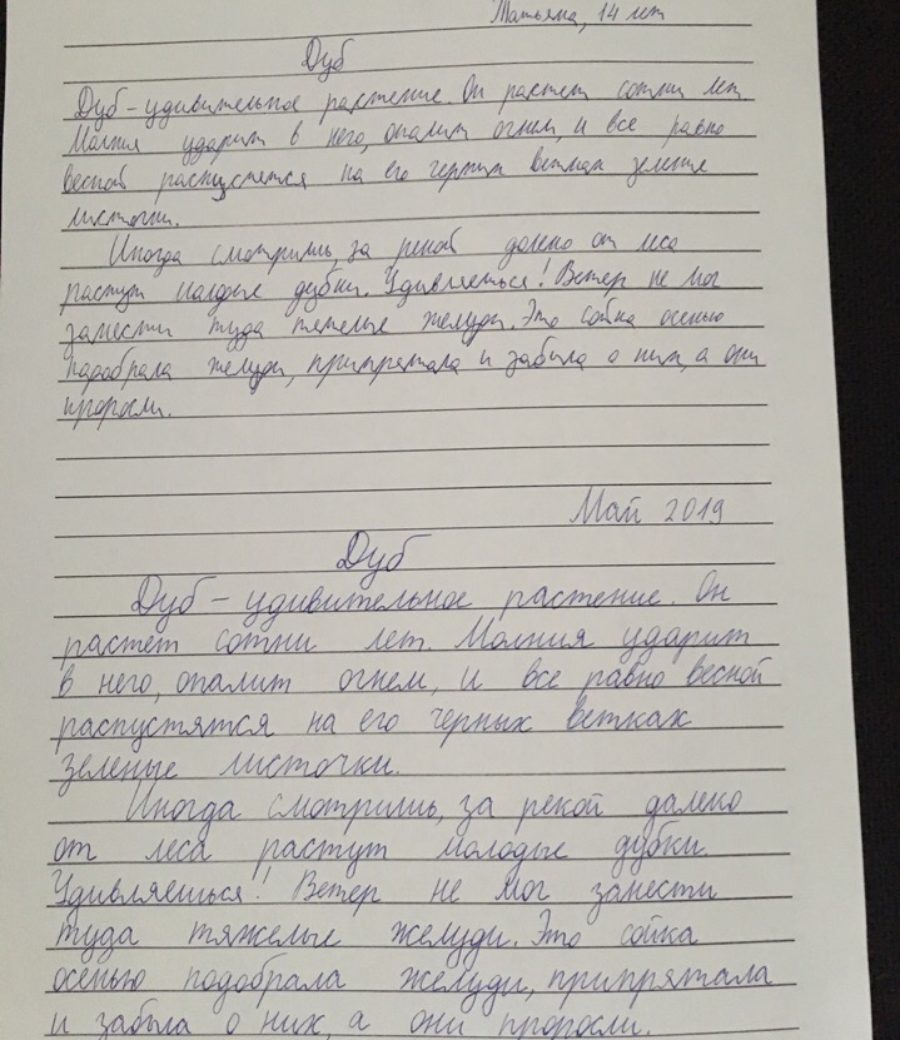 Татьяна, 14 лет
Дуб
Дуб - удивительное растение. Он растет сотни лет.
Молния ударит в него, опалит огнем, и все равно
весной распустятся на его черных ветках зеленые
листочки.
Иногда смотришь, за рекой далеко от леса
растут молодые дубки. Удивляешься! Ветер не мог
занести туда тяжелые желуди. Это сойка осенью
подобрала желуди, припрятала и забыла о них, а они
проросли.
Май 2019
Дуб
Дуб - удивительное растение. Он
растет сотни лет. Молния ударит
в него, опалит огнем, и все равно весной
распустятся на его черных ветках
зеленые листочки.
Иногда смотришь, за рекой далеко
от леса растут молодые дубки.
Удивляешься! Ветер не мог занести
туда тяжелые желуди. Это сойка
осенью подобрала желуди, припрятала
и забыла о них, а они проросли.